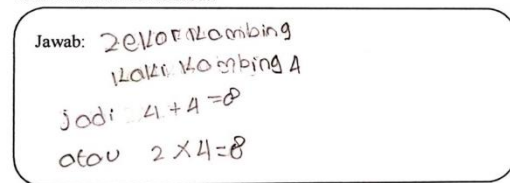 Jawab: 2 ekor kambing
kaki kambing 4
jadi 4 + 4 = 8
atau 2 × 4 = 8